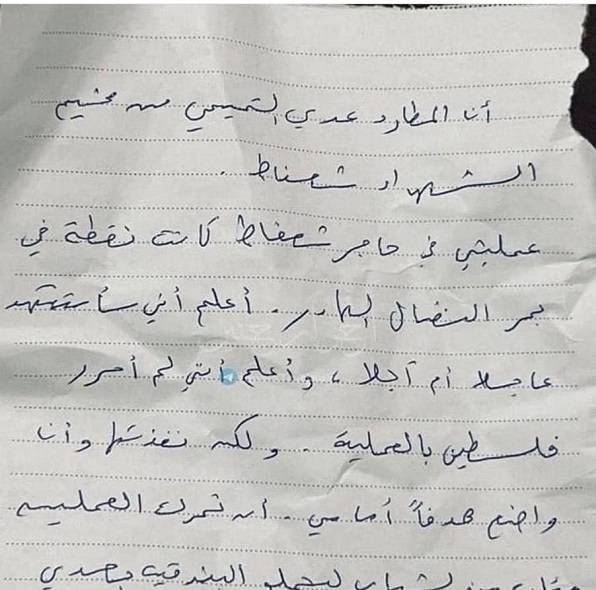 أنا المطارد عدي التميمي من مخيم
الشهداء شعفاط .
عمليتي في حاجز شعفاط كانت نقطة في
بحر النضال الهادر . أعلم أني سأستشهد
عاجلا أم آجلا ، وأعلم أنني لم أحرر
فلسطين بالعملية . ولكن نفذتها وأنا
واضع هدفاً أمامي . أن تحرك العملية
مئات من الشباب ليحملو البندقية بعدي